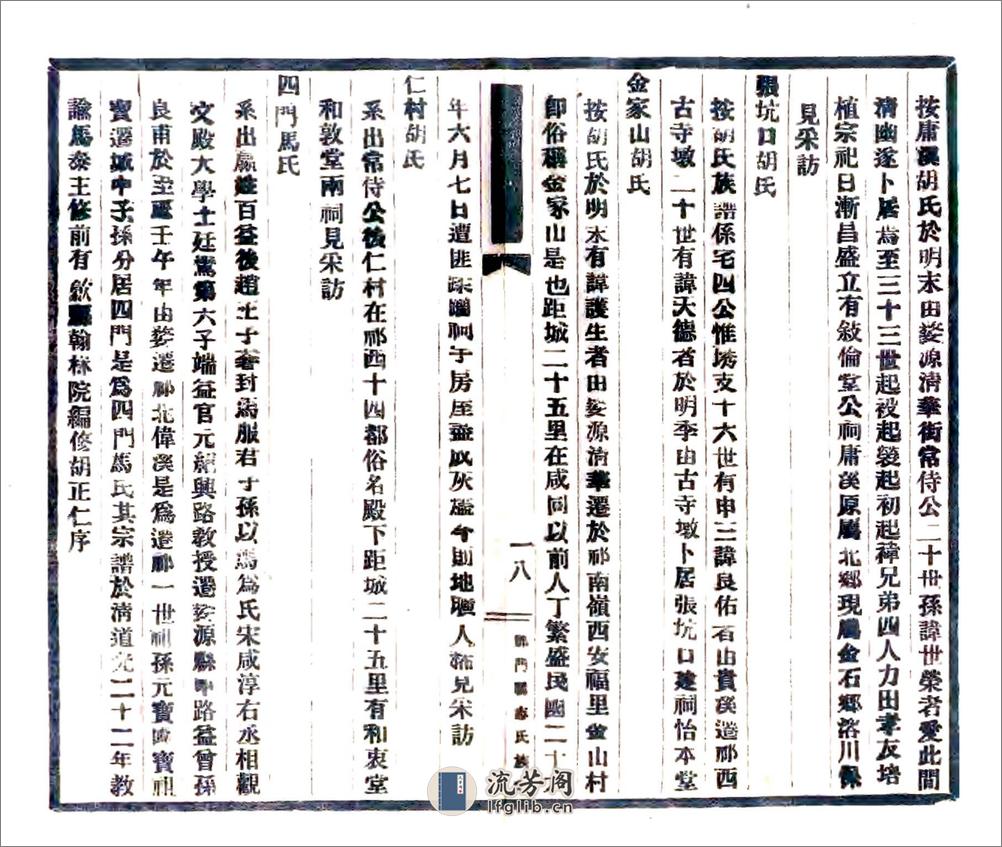 按庸溪胡氏於明末由婺源淸華街常侍公二十世孫諱世榮者愛此間
淸幽遂卜居焉至三十三世起祋起袈起初起褘兄弟四人力田孝友培
植宗祀日漸昌盛立有敘倫堂公祠庸溪原屬北鄉現屬金石鄉溶川保
見采訪
張坑口胡氏
按胡氏族譜係宅四公惟琇支十六世有申三諱良佑者由貴溪遷祁西
古寺墩二十世有諱天德者於明季由古寺墩卜居張坑口建祠怡本堂
金家山胡氏
按胡氏於明末有諱護生者由婺源淸華遷於祁南嶺西安福里金山村
卽俗稱金家山是也距城二十五里在咸同以前人丁繁盛民國二十
一八
祁門縣志氏族
年六月七日遭匪蹂躪祠宇房屋盡成灰燼今則地曠人稀見采訪
仁村胡氏
系出常侍公後仁村在祁西十四都俗名殿下距城二十五里有和衷堂
和敦堂兩祠見采訪
四門馬氏
系出嬴姓百益後趙王子奢封馬服君子孫以馬爲氏宋咸淳右丞相觀
文殿大學士廷鸞第六子端益官元紹興路教授遷婺源縣 路益曾孫
良甫於至 壬午年由婺遷祁北偉溪是爲遷祁一世祖孫元寶 寶祖
寶遷城中子孫分居四門是爲四門馬氏其宗譜於淸道光二十二年教
諭馬泰主修前有歙縣翰林院編修胡正仁序
流芳阁
lfglib.cn